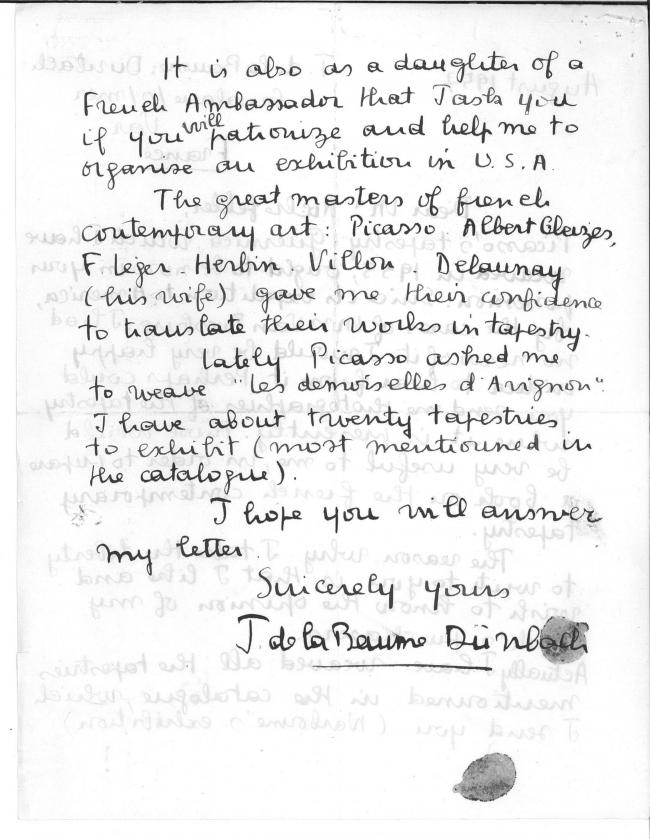 It is also as a daughter of a
French Ambassador that I ask you
if you will patronize and help me to
organise an exhibition in U.S.A.
The great masters of french
contemporary art: Picasso. Albert Gleizes,
F. Leger. Herbin. Villon. Delaunay
(his wife) gave me their confidence
to translate their works in tapestry.
Lately Picasso asked me
to weave "Les demoiselles d'Avignon".
I have about twenty tapestries
to exhibit (most mentiouned in
the catalogue).
I hope you will answer
my letter.
Sincerely yours
J. de la Baume Dürrbach